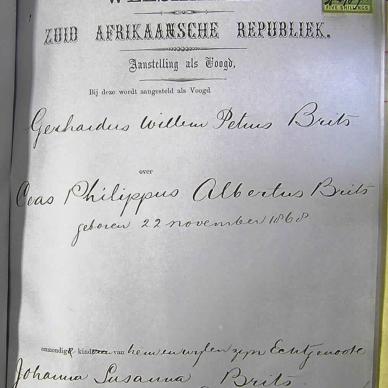 ZUID AFRIKAANSCHE REPUBLIEK.
Aanstelling als Voogd,
Bij deze wordt aangesteld als Voogd
Gerhardus Willem Petrus Brits
over
Philippus Albertus Brits
geboren 22 november 1868
van hem en wylen zyn Echtgenoote
Johanna Susanna Brits